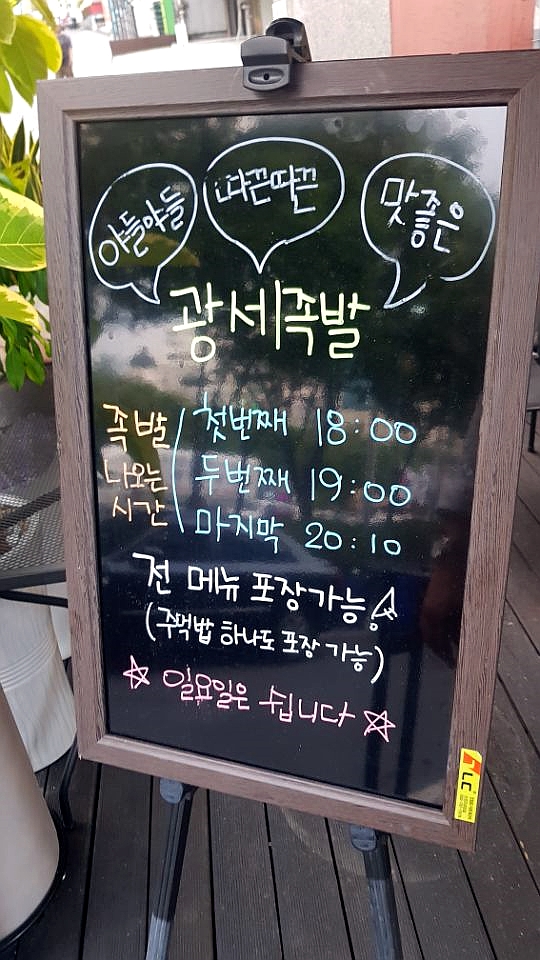 야들야들
따끈따끈
맛좋은
광세족발
족발
나오는
시간
첫번째 18:00
두번째 19:00
마지막 20:10
전 메뉴 포장가능!
(주먹밥 하나도 포장 가능)
☆ 일요일은 쉽니다 ☆
LC